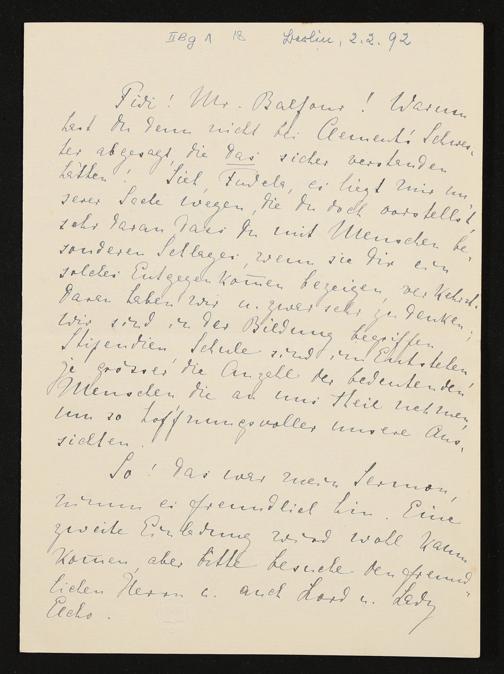 II Bg A 18 Berlin, 2.2.92
Fidi! Mr. Balfour! Warum
hast du denn nicht bei Clement's Schwes-
ter abgesagt, die das sicher verstanden
hätten! Sieh, es liegt mir un-
serer Sache wegen, die du doch vorstellst,
sehr daran dass du mit Menschen be-
sonderen Schlages, wenn sie dir ein
solches Entgegenkom̄en bezeigen, verkehrst.
Daran haben wir u. zwar sehr zu denken;
wir sind in der Bildung begriffen
Stipendien Schule sind im Entstehen
je grösser die Anzahl der bedeutenden
Menschen die an uns theil nehmen,
um so hoffnungsvoller unsere Aus-
sichten.
So! das war mein Sermon,
nimm es freundlich hin. Eine
zweite Einladung wird wohl kaum
kom̄en, aber bitte besuche den freund-
lichen Herrn u. auch Lord u. Lady
Elcho.